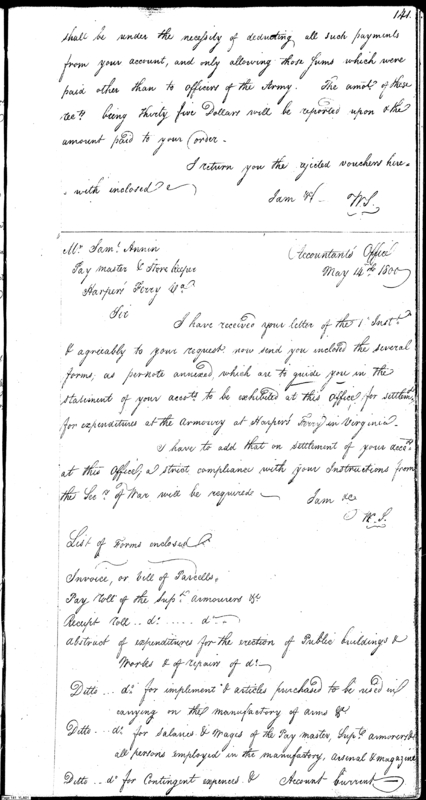 141.
shall be under the necessity of deducting all such payments
from your account, and only allowing those sums which were
paid other than to officers of the Army. The amot. of these
recets. being thirty five Dollars will be reported upon & the
amount paid to your order.
I return you the rejected vouchers here-
with inclosed
I am &c. W.S.
Mr. Saml. Annin
Pay master & Store Keeper
Harpers Ferry Va.
Accountants Office
May 14th 1800
Sir
I have received your letter of the 1st Inst.
& agreeably to your request now send you inclosed the several
forms, as per note annexed, which are to guide you in the
statement of your accots. to be exhibited at this Office, for settlemt.
for expenditures at the Armoury at Harpers Ferry in Virginia.
I have to add that on settlement of your accts.
at this Office, a strict compliance with your Instructions from
the Secy. of War will be required
I am &c
W.S.
List of Forms enclosed
Invoice, or Bill of Parcells.
Pay roll of the Supt. Armourers &c
Receipt roll .. do. ...... do.
Abstract of expenditures for the erection of Public buildings &
Works & of repairs of do.
Ditto ... do. for implemts. & articles purchased to be used in
carrying on the manufactory of arms &c
Ditto ... do. for Salaries & Wages of the Pay master, Supt. armorers &
all persons employed in the manufactory, Arsenal & magazine
Ditto ... do for Contingent expences &. Account Current